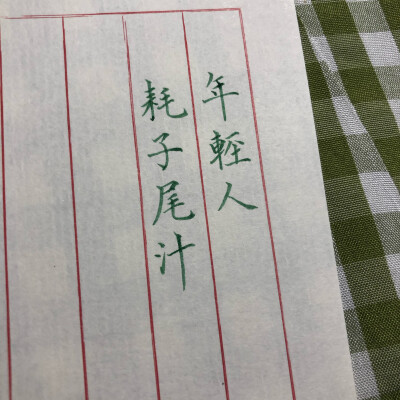 年輕人
耗子尾汁